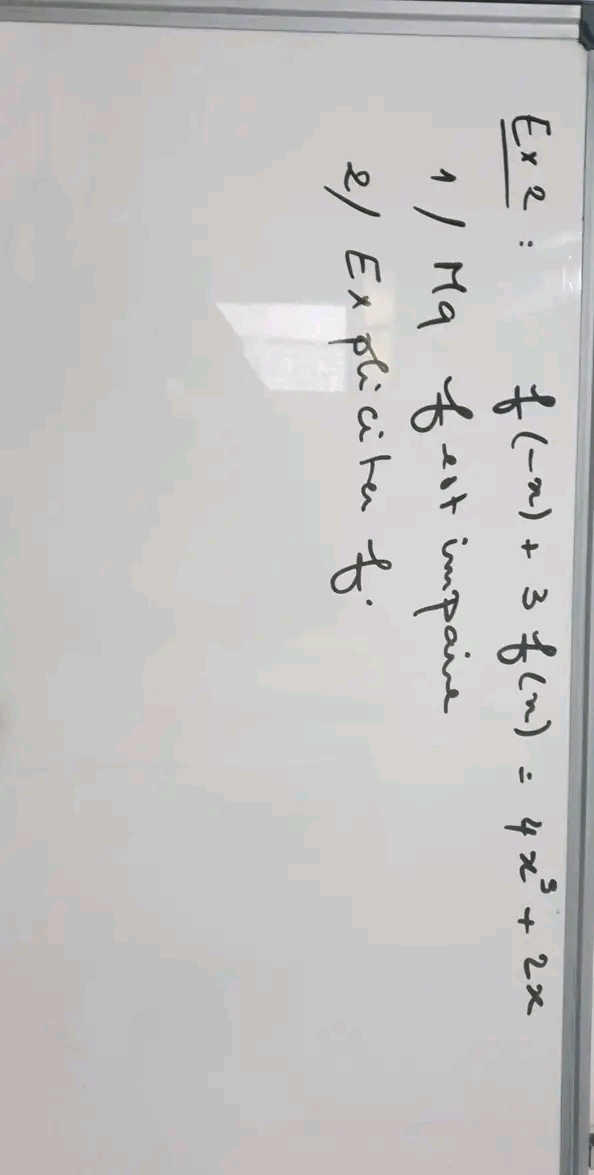 Ex 2 : f(-x) + 3 f(x) = 4x³ + 2x
1/ Mq f est impaire
2/ Expliciter f.